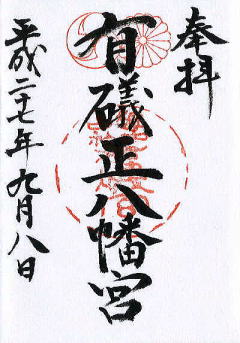 奉拝
有礒正八幡宮
平成二十七年九月八日